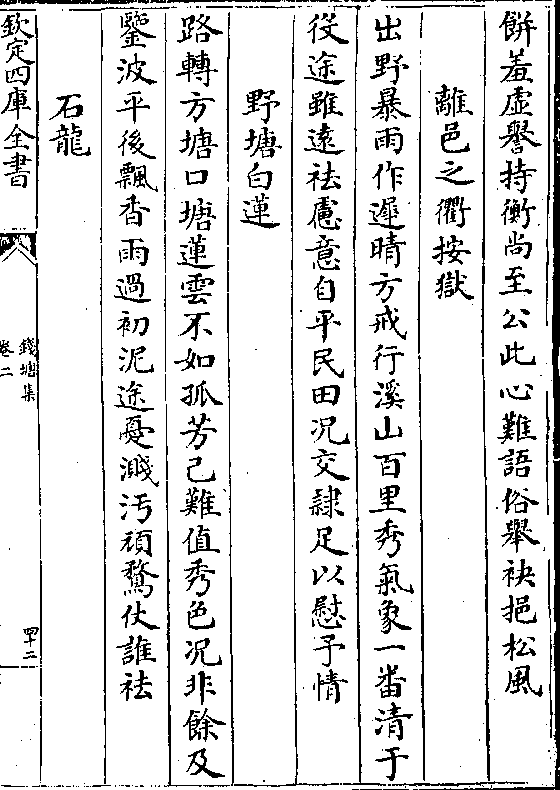 餅羞虛譽持衡尚至公此心難語俗舉袂挹松風
離邑之衢按獄
出野暴雨作遲晴方戒行溪山百里秀氣象一畨清于
役途雖遠祛慮意自平民田况交隷足以慰予情
野塘白蓮
路轉方塘口塘蓮雲不如孤芳已難值秀色况非餘及
鑒波平後飄香雨過初泥途憂濺汚頑鶩仗誰祛
石龍
欽定四庫全書
錢塘集
卷二
四十二